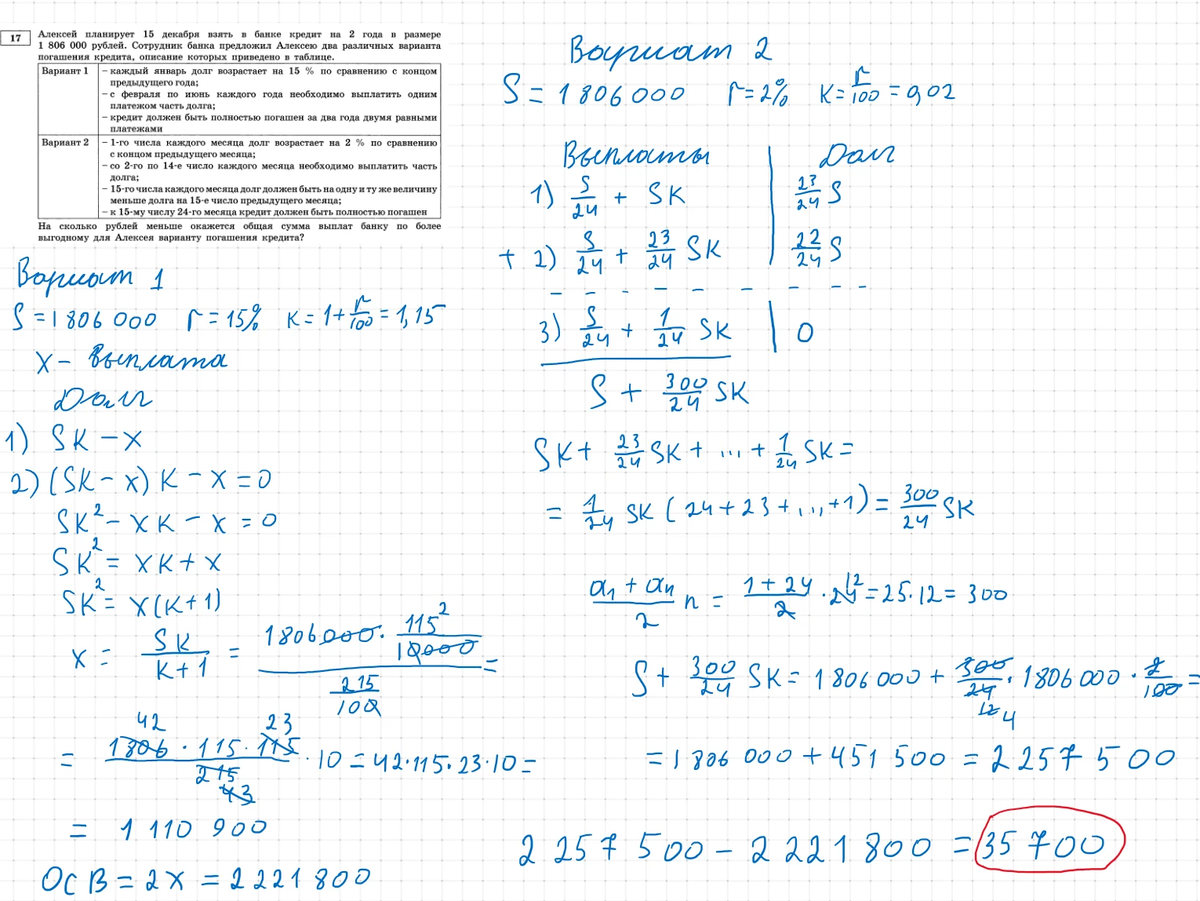 17
Алексей планирует 15 декабря взять в банке кредит на 2 года в размере
1 806 000 рублей. Сотрудник банка предложил Алексею два различных варианта
погашения кредита, описание которых приведено в таблице.
Вариант 1
– каждый январь долг возрастает на 15 % по сравнению с концом
предыдущего года;
– с февраля по июнь каждого года необходимо выплатить одним
платежом часть долга;
– кредит должен быть полностью погашен за два года двумя равными
платежами
Вариант 2
– 1-го числа каждого месяца долг возрастает на 2 % по сравнению
с концом предыдущего месяца;
– со 2-го по 14-е число каждого месяца необходимо выплатить часть
долга;
– 15-го числа каждого месяца долг должен быть на одну и ту же величину
меньше долга на 15-е число предыдущего месяца;
– к 15-му числу 24-го месяца кредит должен быть полностью погашен
На сколько рублей меньше окажется общая сумма выплат банку по более
выгодному для Алексея варианту погашения кредита?
Вариант 1
S = 1 806 000 r = 15% K = 1 + r/100 = 1,15
X – выплата
Долг
1) SK – X
2) (SK – X) K – X = 0
SK² – XK – X = 0
SK² = XK + X
SK² = X(K+1)
X = SK/(K+1) = (1806000 · 115²/10000)/(215/100) =
= (1806 · 115 · 115)/215 · 10 = 42·115·23·10 =
42 23
43
= 1 110 900
ОСВ = 2X = 2 221 800
Вариант 2
S = 1 806 000 r = 2% K = r/100 = 0,02
Выплаты | Долг
1) S/24 + SK | 23/24 S
+ 2) S/24 + 23/24 SK | 22/24 S
– – – – – – – – –
3) S/24 + 1/24 SK | 0
S + 300/24 SK
SK + 23/24 SK + ... + 1/24 SK =
= 1/24 SK (24+23+...+1) = 300/24 SK
(a₁ + aₙ)/2 n = (1+24)/2 · 24 12 = 25·12 = 300
S + 300/24 SK = 1 806 000 + 300/24 · 1806 000 · 2/100 =
12 4
= 1 806 000 + 451 500 = 2 257 500
2 257 500 – 2 221 800 = 35 700